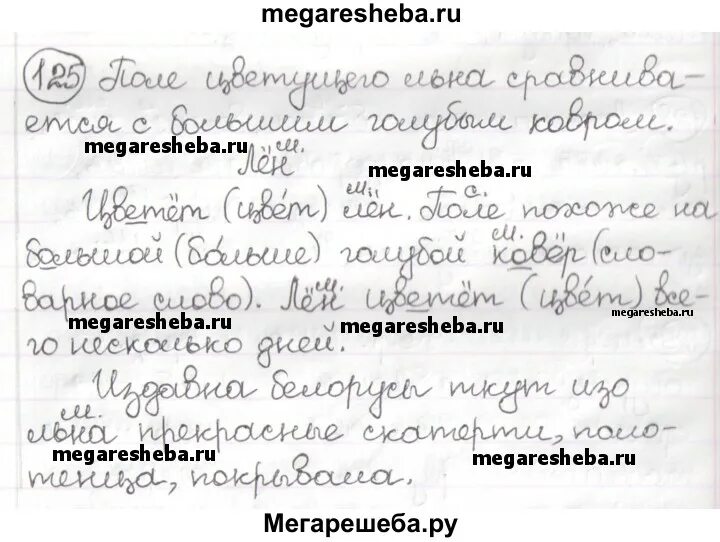 megaresheba.ru
125 Поле цветущего льна сравнива-
ется с большим голубым ковром.
megaresheba.ru
м.
Лён
megaresheba.ru
м. с.
Цветёт (цве́т) лён. Поле похоже на
м.
большой (бо́льше) голубой ковёр (сло-
м.
варное слово). Лён цветёт (цве́т) все-
megaresheba.ru megaresheba.ru megaresheba.ru
го несколько дней.
Издавна белорусы ткут изо
м.
льна прекрасные скатерти, поло-
megaresheba.ru megaresheba.ru
тенца, покрывала.
Мегарешеба.ру